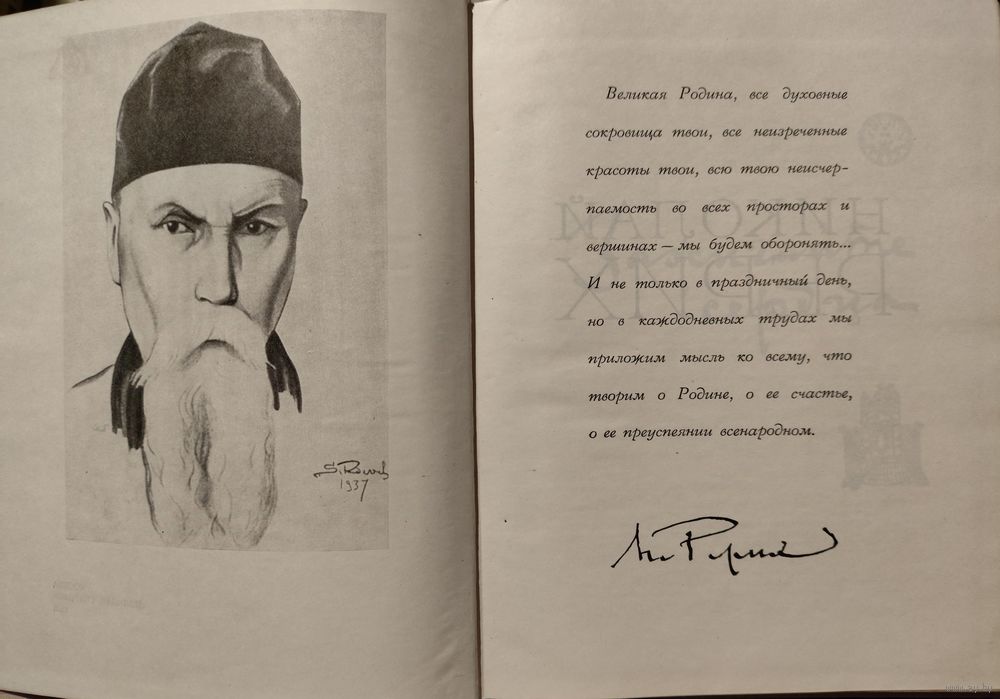 S. Roerich
1937
Великая Родина, все духовные
сокровища твои, все неизреченные
красоты твои, всю твою неисчер-
паемость во всех просторах и
вершинах — мы будем оборонять...
И не только в праздничный день,
но в каждодневных трудах мы
приложим мысль ко всему, что
творим о Родине, о ее счастье,
о ее преуспеянии всенародном.
НИКОЛАЙ
РЕРИХ